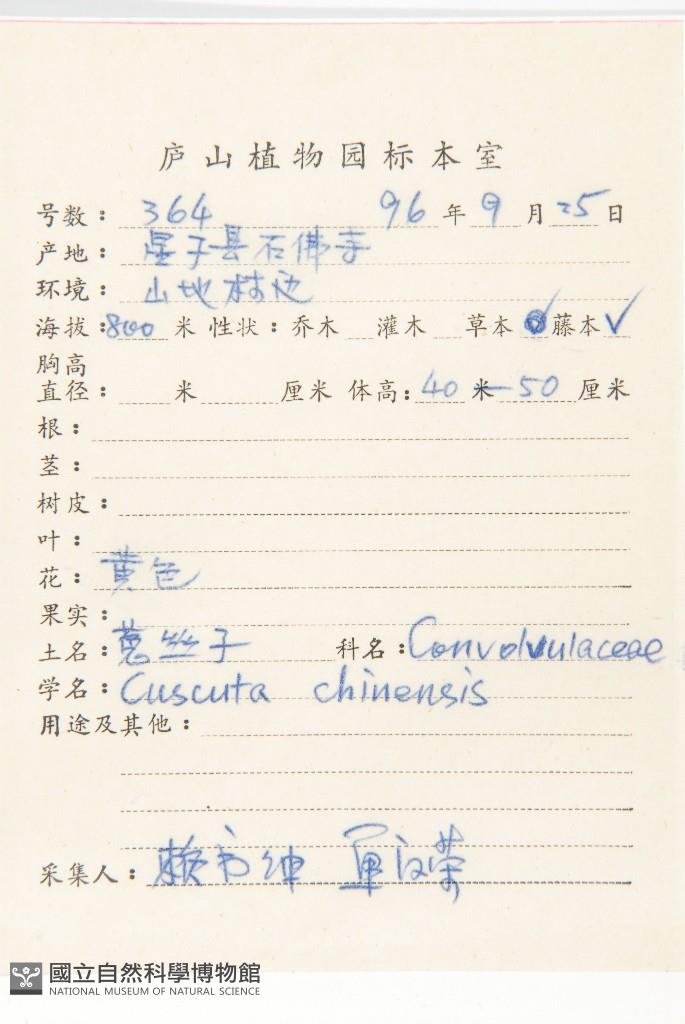 庐山植物园标本室
号数：364 96年9月25日
产地：星子县石佛寺
环境：山地林边
海拔：800米 性状：乔木 灌木 草本 藤本✓
胸高
直径： 米 厘米 体高：40米—50厘米
根：
茎：
树皮：
叶：
花：黄色
果实：
土名：菟丝子 科名：Convolvulaceae
学名：Cuscuta chinensis
用途及其他：
采集人：赖书绅
國立自然科學博物館
NATIONAL MUSEUM OF NATURAL SCIENCE